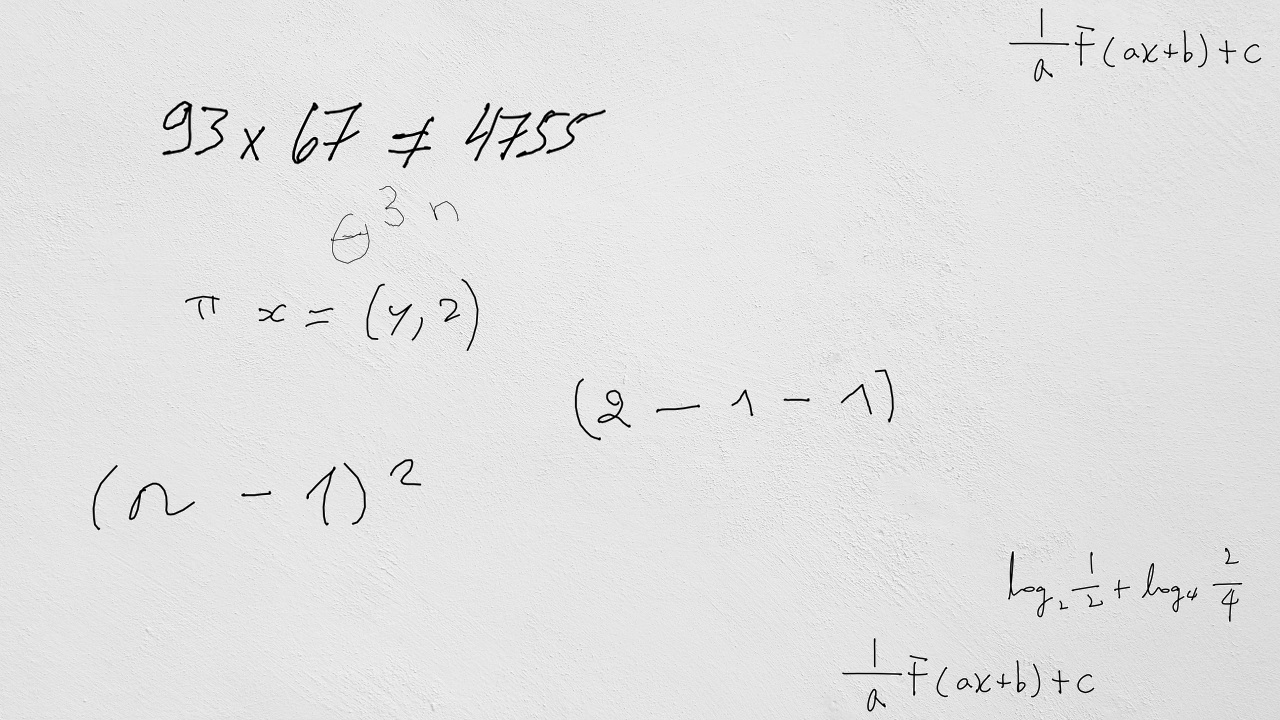 1/a F(ax+b)+c
93 x 67 ≠ 4755
θ³ n
π x = (y, z)
(2 - 1 - 1)
(n - 1)²
log₂ 1/2 + log₄ 2/4
1/a F(ax+b)+c